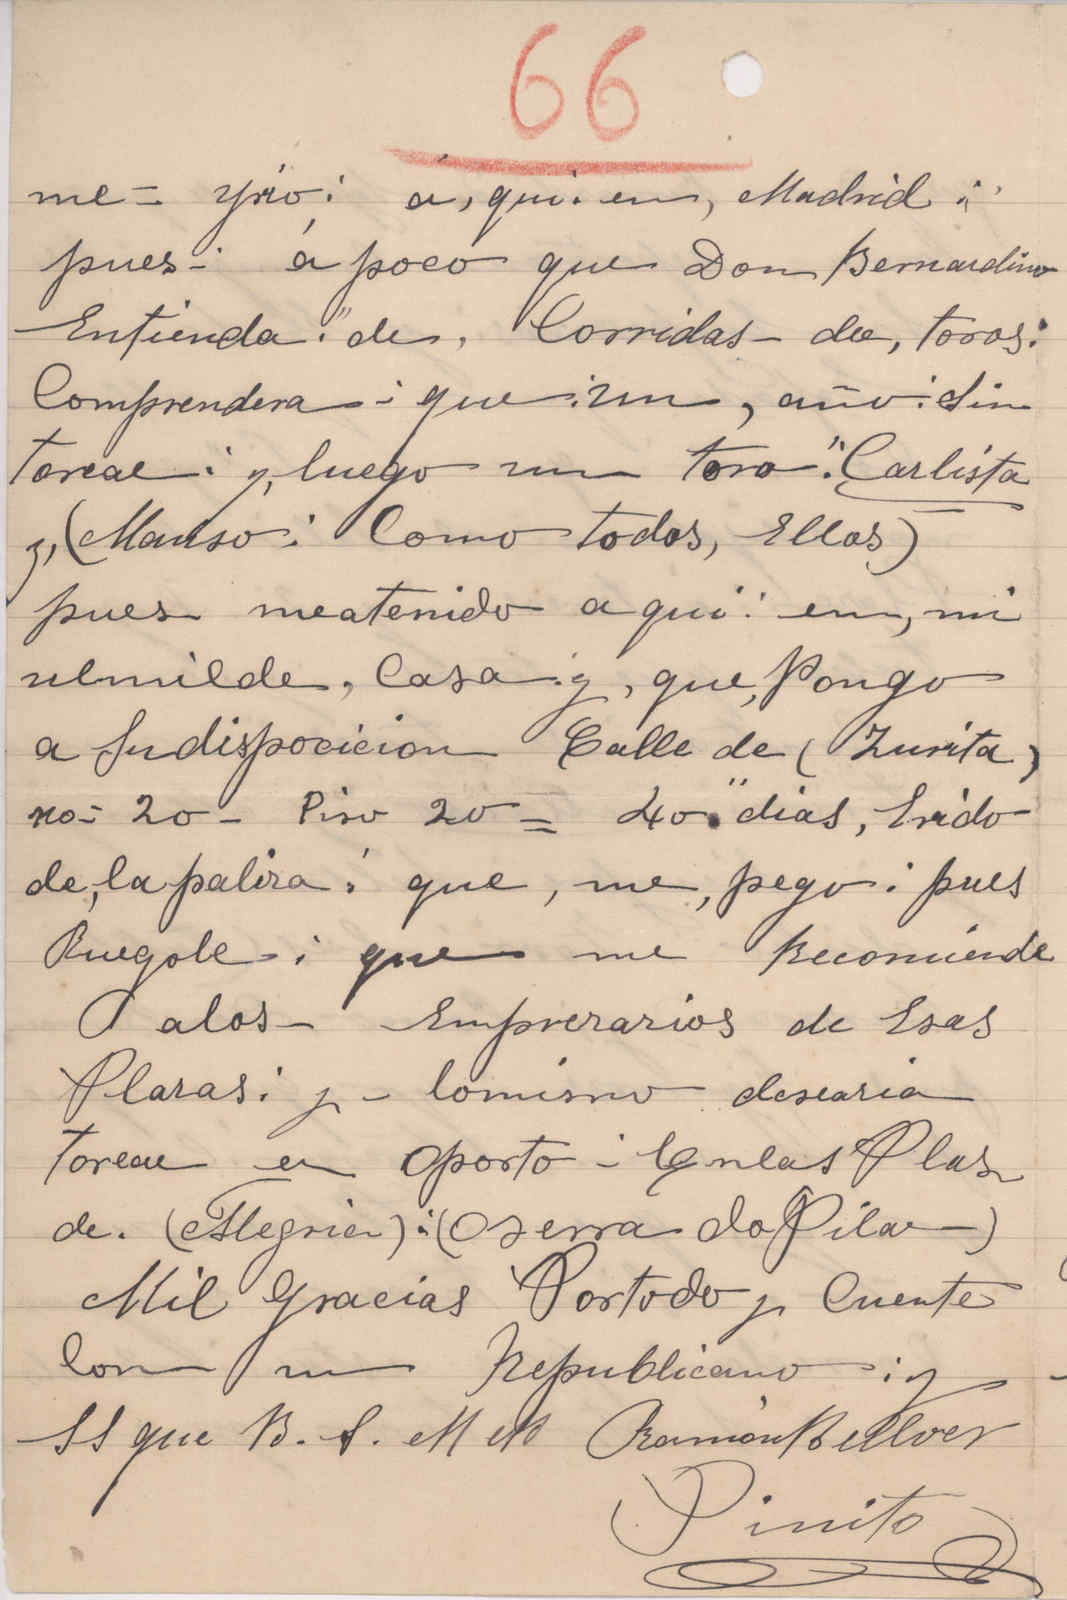 66
me= yrio: á, qui: en, Madrid :"
pues-: á poco que Don Bernardino
Entienda:" de, Corridas- de, toros:
Comprendera-: que: un, año: Sin
torear: y, luego un toro ": Carlista
y, (Manso: Como todos, Ellos)
pues meatenido aqui: en, mi
ulmilde, Casa: y, que, Pongo
a Sudisposicion Calle de (Zurita)
no= 20- Piso 20= 40" dias, Erido
de, la paliza: que, me, pego: pues
Ruegole: que me Recomiende
alos- Emprezarios de Esas
Plazas: y- lomismo desearia
torear en Oporto-: Enlas Plas
de. (Alegria): (Oserra do Pilar-)
Mil Gracias Portodo y Cuente
Con un Republicano: y
SS que B. S. M Ramón Bellver
Pinito